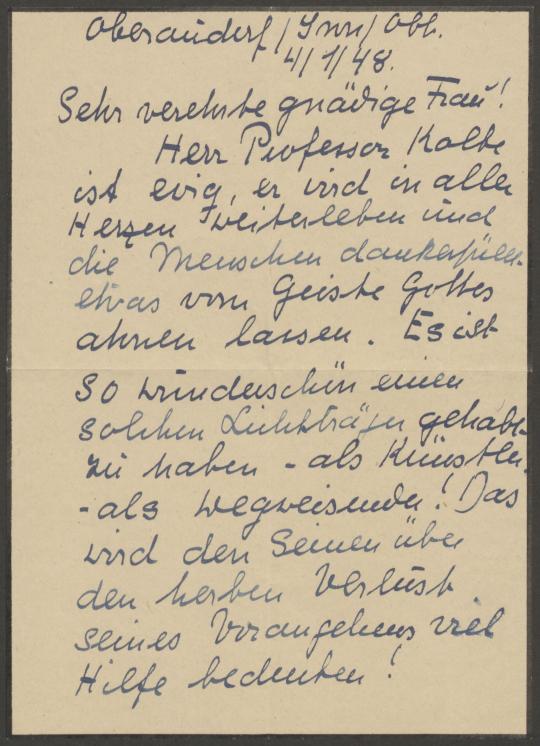 Oberaudorf/Inn/Obb.
4/1/48.
Sehr verehrte gnädige Frau!
Herr Professor Kolbe
ist ewig, er wird in aller
Herzen weiterleben und
die Menschen dankerfüllt
etwas vom Geiste Gottes
ahnen lassen. Es ist
so wunderschön einen
solchen Lichtträger gehabt
zu haben - als Künstler -
- als Wegweisender! Das
wird den Seinen über
den herben Verlust
seines Vorangehens viel
Hilfe bedeuten!